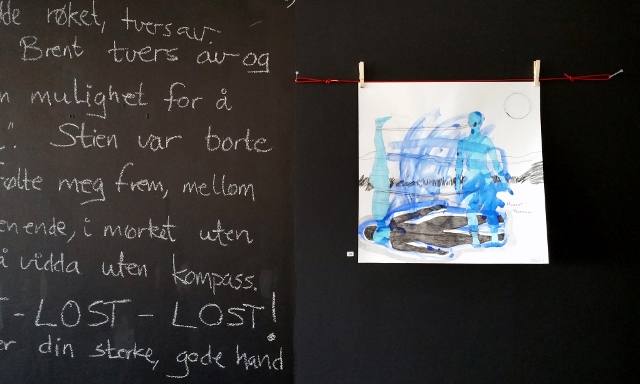 røket, tvers av
Brent tvers av og
mulighet for å
Stien var borte
meg frem, mellom
i mørket uten
vidda uten kompass.
-LOST - LOST!
din sterke, gode hand